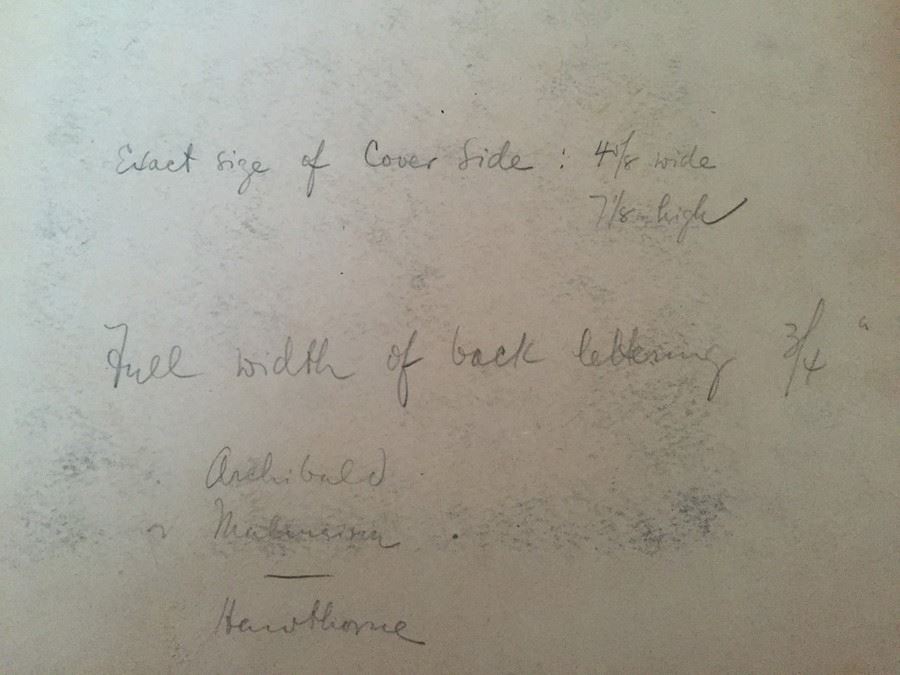 Exact size of Cover Side : 4 1/8 wide
7 1/8 high
Full width of back lettering 3/4 "
Archibald
Malmaison
Hawthorne